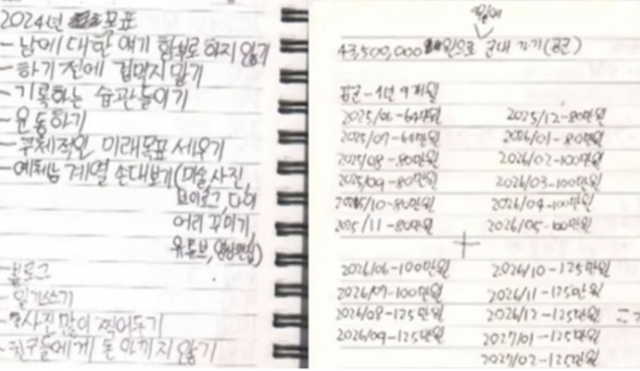 2024년 목표
- 남에 대한 얘기 함부로 하지 않기
- 하기 전에 겁먹지 말기
- 기록하는 습관들이기
- 운동하기
- 구체적인 미래목표 세우기
- 예체능 계열 손대보기(미술, 사진,
브이로그, 다이
어리 꾸미기,
유튜브, 영상편집)
- 블로그
- 일기쓰기
- 사진 많이 찍어두기
- 친구들에게 돈 아끼지 않기
43,500,000원으로 군대 가기(공군)
공군 - 1년 9개월
2025/06-64만원
2025/07-64만원
2025/08-80만원
2025/09-80만원
2025/10-80만원
2025/11-80만원
2025/12-80만원
2026/01-80만원
2026/02-100만원
2026/03-100만원
2026/04-100만원
2026/05-100만원
+
2026/06-100만원
2026/07-100만원
2026/08-125만원
2026/09-125만원
2026/10-125만원
2026/11-125만원
2026/12-125만원
2027/01-125만원
2027/02-125만원